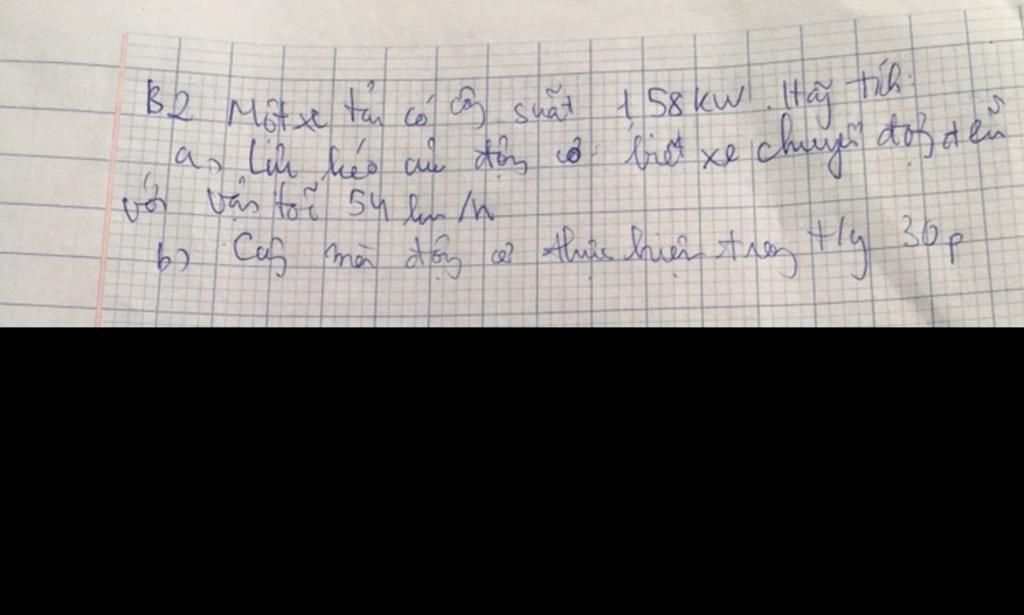 B2 Một xe tải có công suất 158kW. Hãy tính:
a, Lực kéo của động cơ biết xe chuyển động đều
với vận tốc 54 km/h
b) Công mà động cơ thực hiện trong t/g 30p